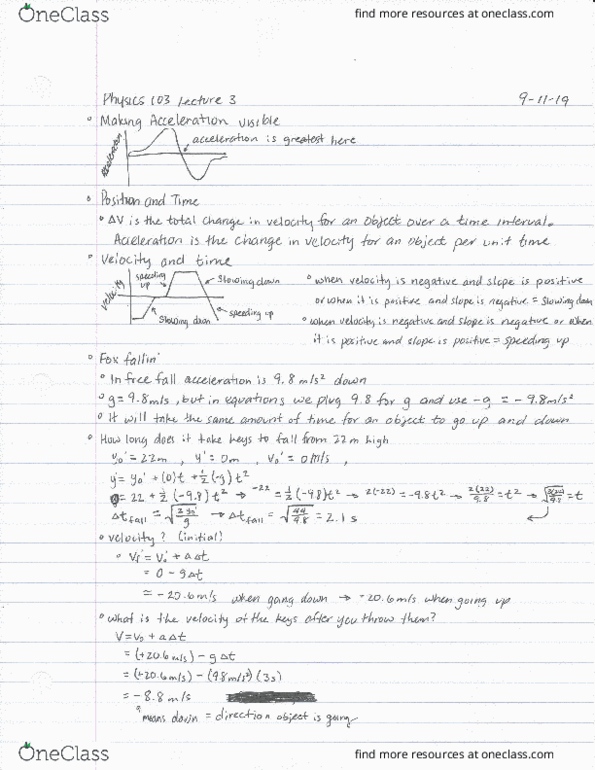 OneClass
find more resources at oneclass.com
Physics 103 Lecture 3
9-11-19
• Making Acceleration visible
Acceleration
acceleration is greatest here
• Position and Time
• ΔV is the total change in velocity for an object over a time interval.
Acceleration is the change in velocity for an object per unit time
• Velocity and time
velocity
speeding up
slowing down
slowing down
speeding up
• when velocity is negative and slope is positive
or when it is positive and slope is negative = slowing down
• when velocity is negative and slope is negative or when
it is positive and slope is positive = speeding up
• Fox fallin'
• In free fall acceleration is 9.8 m/s² down
• g = 9.8m/s, but in equations we plug 9.8 for g and use -g = -9.8m/s²
• It will take the same amount of time for an object to go up and down
• How long does it take keys to fall from 22m high
y₀ = 22m , y = 0m , v₀ = 0m/s ,
y = y₀ + (0)t + ½(-g)t²
= 22 + ½(-9.8)t² → -22 = ½(-9.8)t² → 2(-22) = -9.8t² → 2(22)/9.8 = t² → = t
Δt fall = √(2y₀/g) → Δt fall = √(44/9.8) = 2.1 s
• velocity? (initial)
• Vf = V₀ + aΔt
= 0 - gΔt
≈ -20.6m/s when going down → -20.6m/s when going up
• what is the velocity of the keys after you throw them?
V = V₀ + aΔt
= (+20.6m/s) - gΔt
= (+20.6m/s) - (9.8m/s²)(3s)
= -8.8 m/s
means down = direction object is going
OneClass
find more resources at oneclass.com